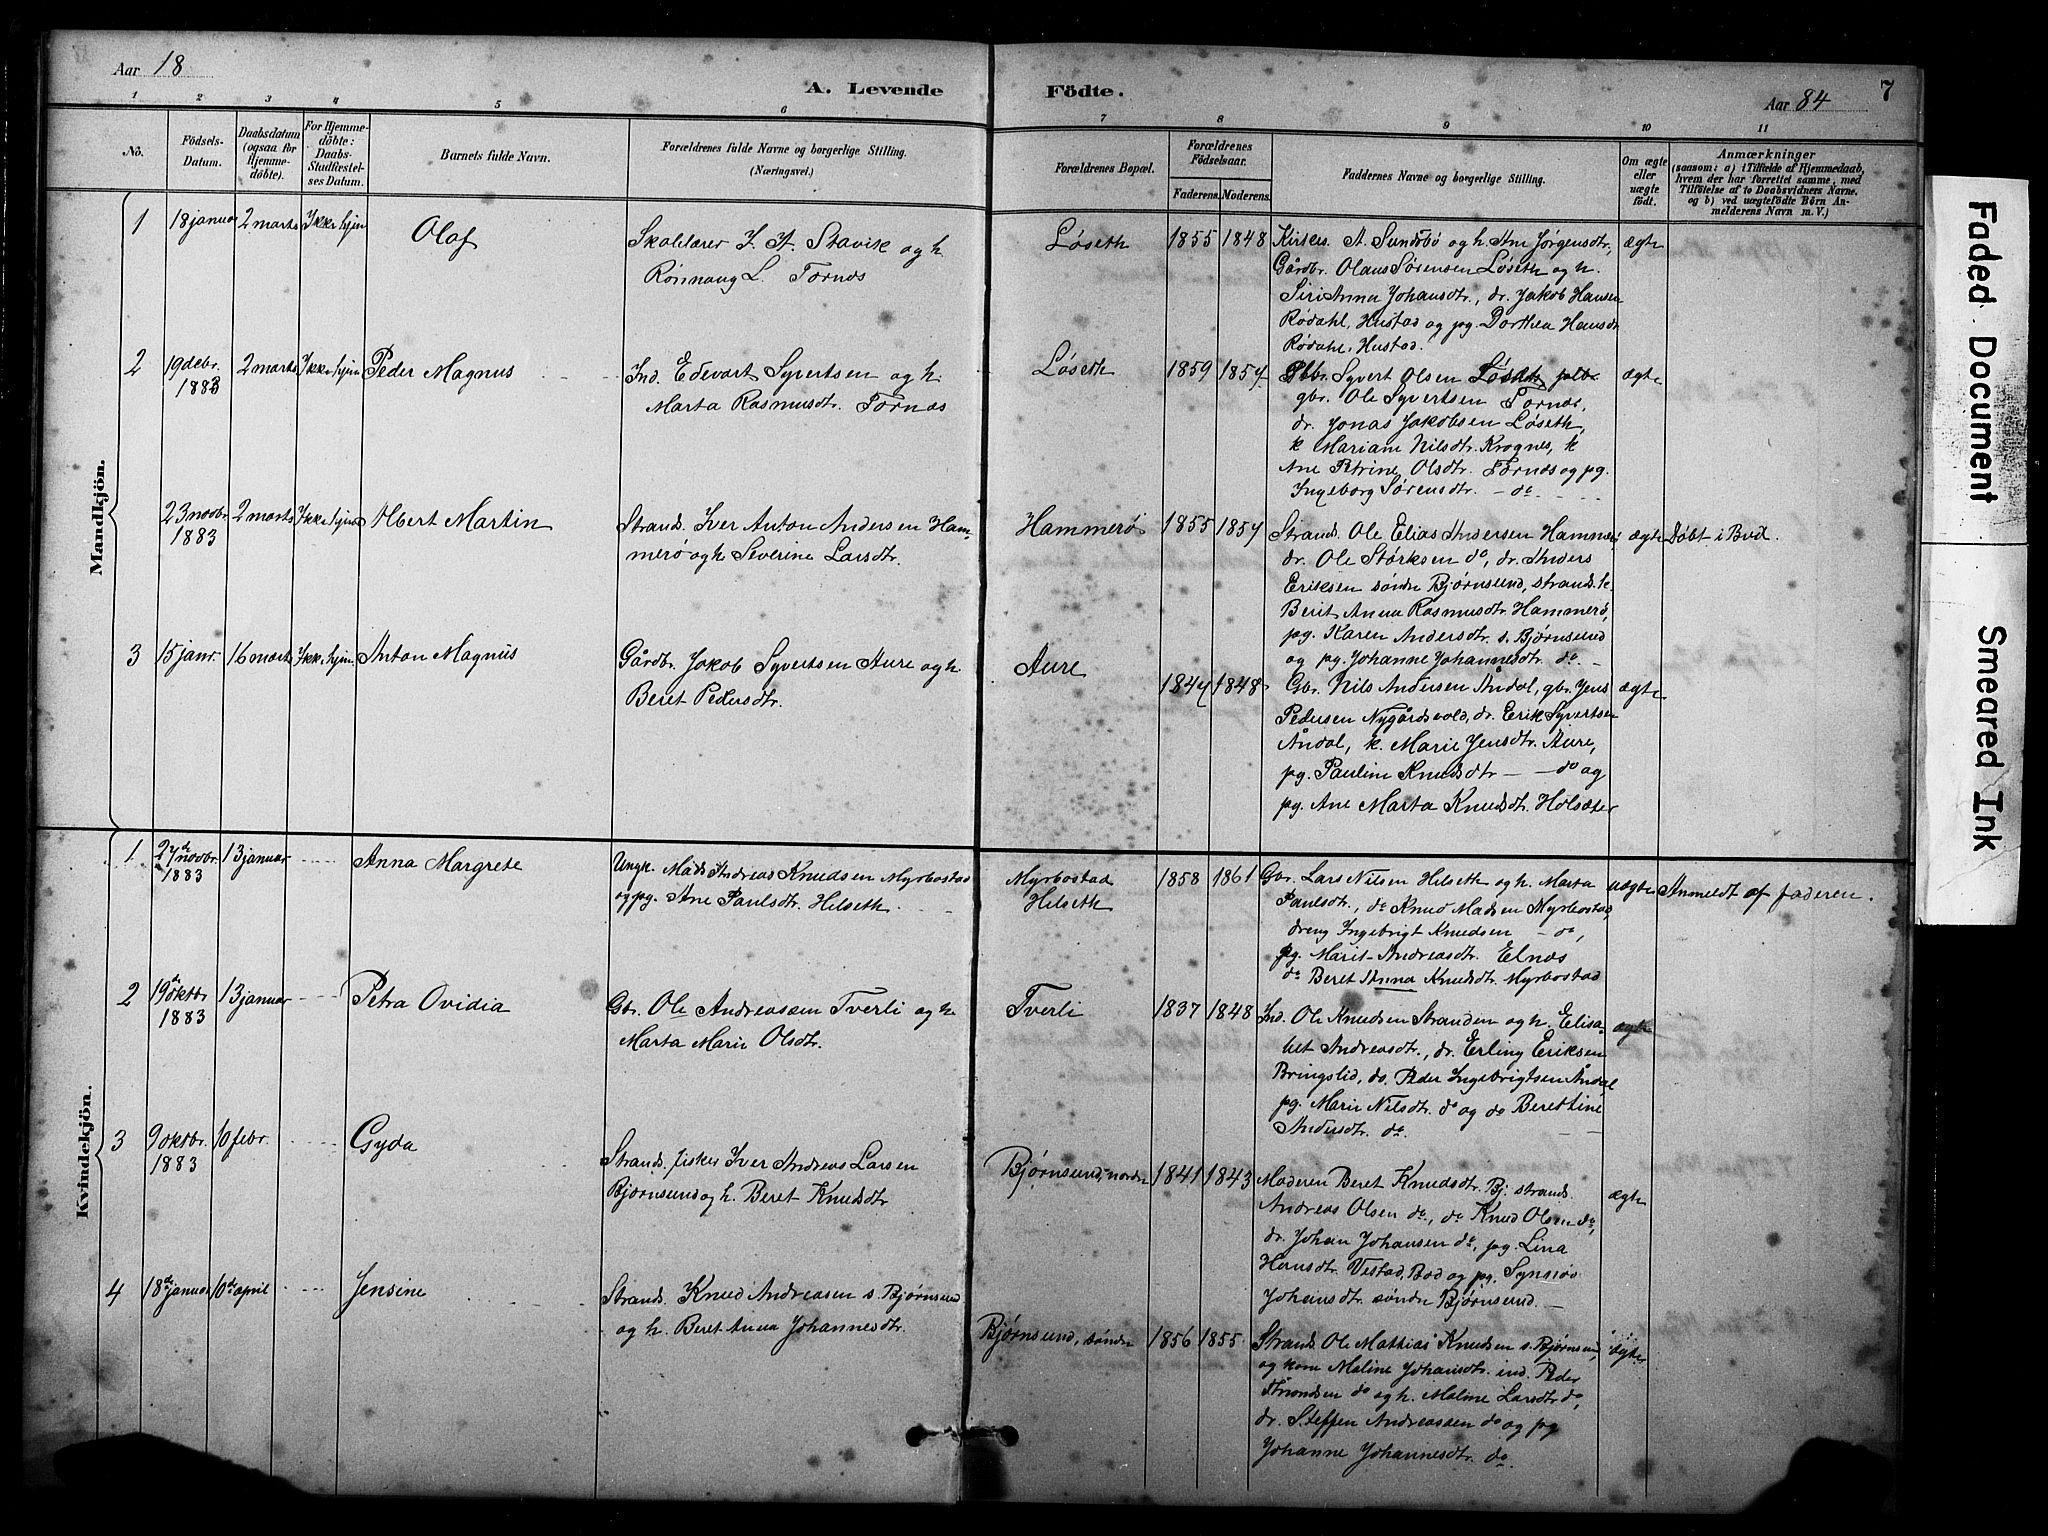 Aar 18
A. Levende Födte.
Aar 84
7
1 2 3 4 5 6 7 8 9 10 11
No.
Födsels-Datum.
Daabsdatum (ogsaa for Hjemme-döbte).
For Hjemme-döbte: Daabs-Stadfæstel-ses Datum.
Barnets fulde Navn.
Forældrenes fulde Navne og borgerlige Stilling.
(Næringsvei.)
Forældrenes Bopæl.
Forældrenes Födselsaar.
Faderens. Moderens.
Faddernes Navne og borgerlige Stilling.
Om ægte eller uægte födt.
Anmærkninger
(saasom: a) i Tilfælde af Hjemmedaab,
hvem der har forrettet samme, med
Tilföielse af to Daabsvidners Navne.
og b) ved uægtefödte Börn An-
melderens Navn m. V.)
Mandkjön.
1 18 januar 2 marts Ikke hjem Olaf
Skolelærer I. A. Stavik og h.
Rönnaug L. Tornes
Løseth 1855 1848
Kirkes. A. Sundsbö og h. Ane Jørgensdtr,
Gårdbr. Olaus Sørensen Løseth og h.
Siri Anna Johansdtr., dr. Jakob Hansen
Rødahl, Hustad og pg. Dorthea Hansdr
Rødahl, Hustad.
ægte
2 19 debr. 1883 2 marts Ikke hjem Peder Magnus
Ind. Edevart Syvertsen og h.
Marta Rasmusdtr. Tornes
Løseth 1859 1857
Gbr. Syvert Olsen Løseth,
gbr. Ole Syvertsen Tornes,
dr. Jonas Jakobsen Løseth,
k Mariam Nilsdtr. Krognes, k
Ane Petrine Olsdtr. Tornes og pg.
Ingeborg Sørensdtr. – do
ægte
23 novbr. 1883 2 marts Ikke hjem Olbert Martin
Strands. Iver Anton Andersen Ham-
merö og h. Severine Larsdtr.
Hammerö 1855 1857
Strands. Ole Elias Andersen Hammerö
dr. Ole Størksen do, dr. Anders
Eriksen søndre Bjørnsund, strands. k.
Berit Anna Rasmusdtr Hammerö,
pg. Karen Andersdtr. s. Bjørnsund
og pg. Johanne Johannesdtr. do. –
ægte Döbt i Bud.
3 15 janr. 16 marts Ikke hjem. Anton Magnus
Gårdbr. Jakob Syvertsen Aure og h.
Beret Pedersdtr.
Aure 1847 1848
Gbr. Nils Andersen Åndal, gbr. Jens
Pedersen Nygårdsvold, dr. Erik Syvertsen
Åndal, k. Marie Jensdtr. Aure,
pg. Pauline Knudsdtr – do og
pg. Ane Marta Knudsdtr. Holsæter
ægte
Kvindekjön.
1 27de novbr. 1883 13 januar Anna Margrete
Ungk. Mads Andreas Knudsen Myrbostad
og pg. Ane Paulsdtr. Helseth
Myrbostad
Helseth
1858 1861
Gbr. Lars Nilsen Helseth og h. Marta
Paulsdtr., do Knud Madsen Myrbostad,
dreng Ingebrigt Knudsen – do,
pg. Marit Andreasdtr. Elnes
do Beret Anna Knudsdtr. Myrbostad
uægte Anmeldt af faderen.
2 19de oktbr. 1883 13 januar Petra Ovidia
Gbr. Ole Andreassen Tverli og h.
Marta Marie Olsdtr.
Tverli 1837 1848
Ind. Ole Knudsen Stranden og h. Elisa-
bet Andreasdtr., dr. Erling Eriksen
Bringslid, do. Peder Ingebrigtsen Åndal,
pg. Marie Nilsdtr. do og do Beret Line
Andersdtr. do.
ægte
3 9 oktbr. 1883 10 febr. Gyda
Strands. fisker Iver Andreas Larsen
Bjørnsund og h. Beret Knudsdtr
Bjørnsund, nordre 1841 1843
Moderen Beret Knudsdtr. Bj. strands.
Andreas Olsen do, do Knud Olsen do,
dr. Johan Johansen do, pg. Lina
Hansdtr. Vestad, Bod og pg. Synnöv
Johansdtr. søndre Bjørnsund. –
ægte
4 18de januar 10de april Jensine
Strands. Knud Andreasen s. Bjørnsund
og h. Beret Anna Johannesdtr.
Bjørnsund, søndre 1856 1855
Strands. Ole Mathias Knudsen s. Bjørnsund,
og kone Maline Johansdtr. ind. Peder
Trondsen do og h. Maline Larsdtr do,
dr. Steffen Andreassen do og pg
Johanne Johannesdtr. do.
ægte
Faded Document
Smeared Ink